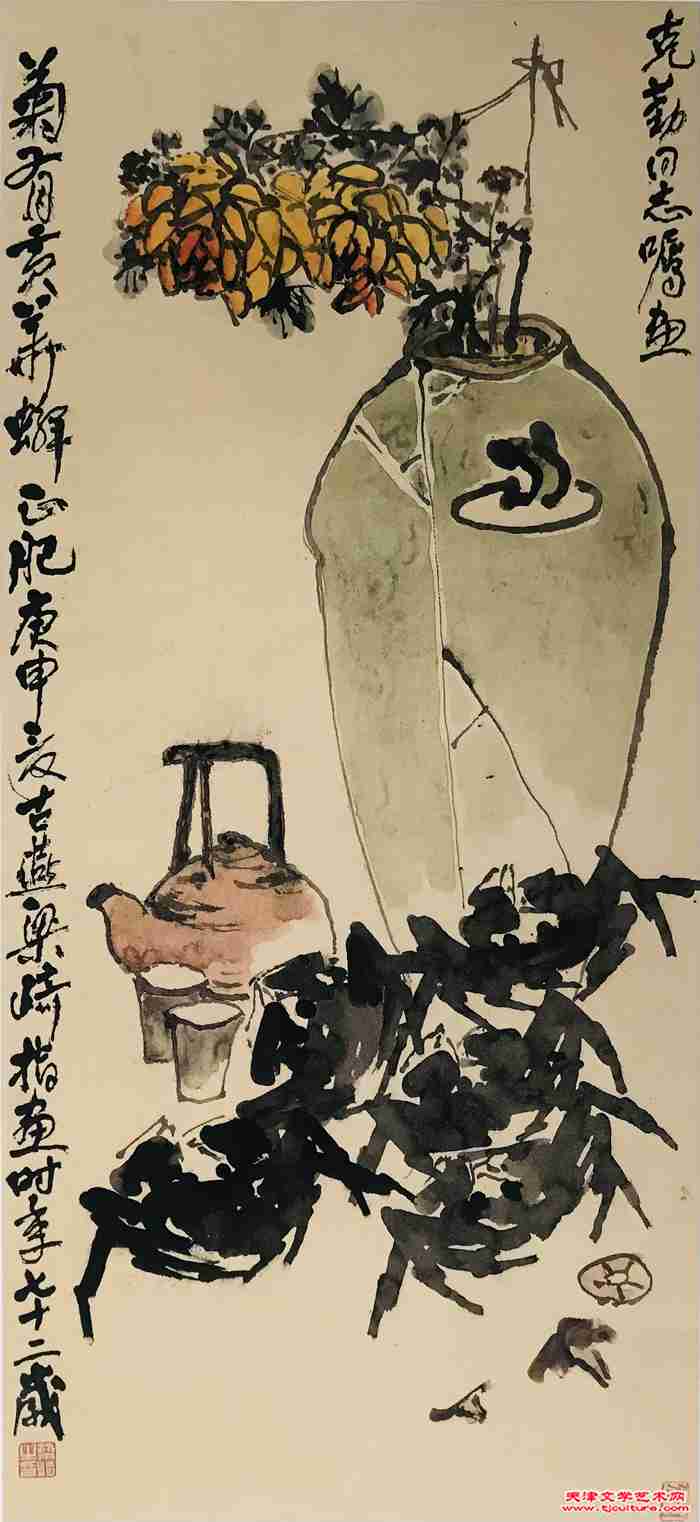 克勤同志嘱画
菊有黄华蟹正肥庚申夏古燕梁崎指画时年七十二岁
天津文学艺术网
www.tjculture.com